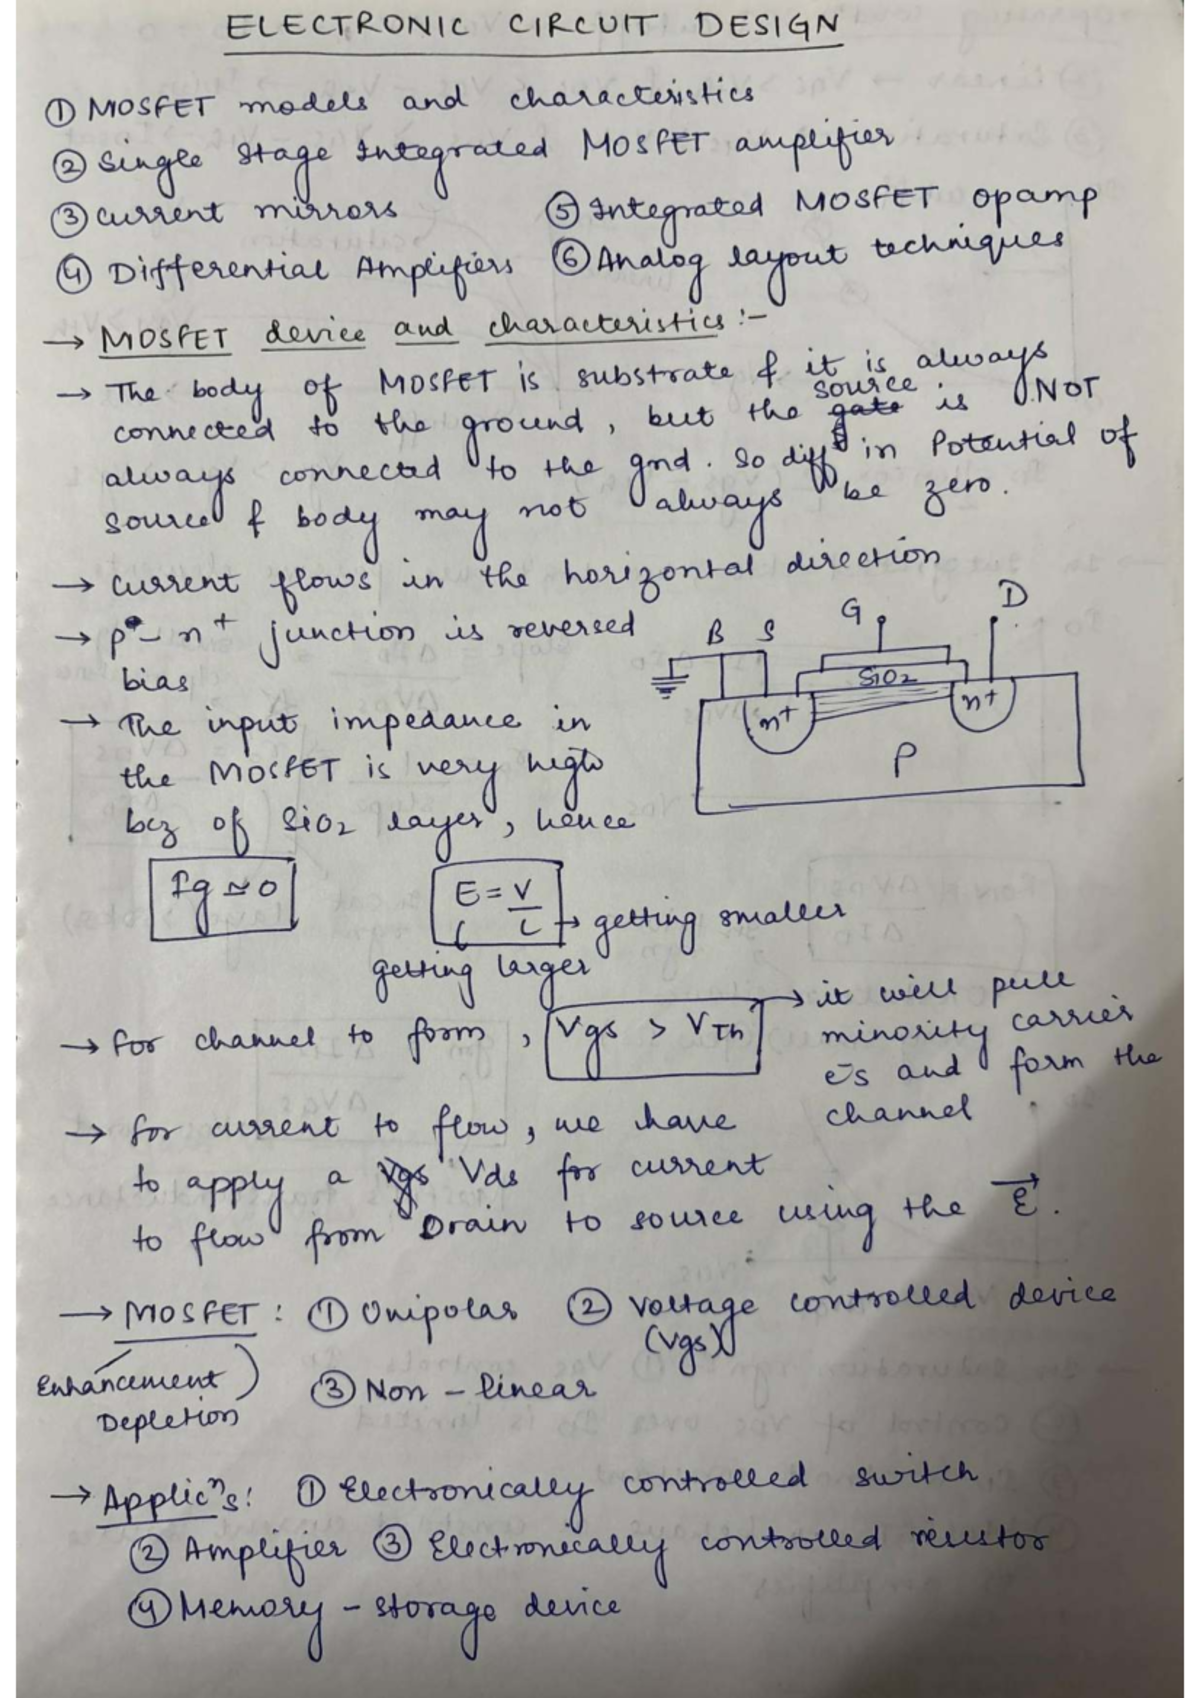 ELECTRONIC CIRCUIT DESIGN
① MOSFET models and characteristics
② Single Stage Integrated MOSFET amplifier
③ current mirrors
④ Differential Amplifiers
⑤ Integrated MOSFET opamp
⑥ Analog layout techniques
→ MOSFET device and characteristics :-
→ The body of MOSFET is substrate & it is always
connected to the ground, but the gate source is NOT
always connected to the gnd. So diff in Potential of
source & body may not always be zero.
→ current flows in the horizontal direction
→ p - n+ junction is reversed
bias
→ The input impedance in
the MOSFET is very high
bcz of SiO2 layer, hence
B S G D
SiO2
n+ n+
P
Ig ≃ 0
E = V/L → getting smaller
getting larger
→ for channel to form, Vgs > VTh
→ it will pull
minority carrier
e⁻s and form the
channel
→ for current to flow, we have
to apply a Vgs Vds for current
to flow from Drain to source using the E⃗.
→ MOSFET : ① Unipolar ② Voltage controlled device
(Vgs)
Enhancement
Depletion
③ Non - linear
→ Applicⁿs : ① Electronically controlled switch
② Amplifier ③ Electronically controlled resistor
④ Memory - storage device